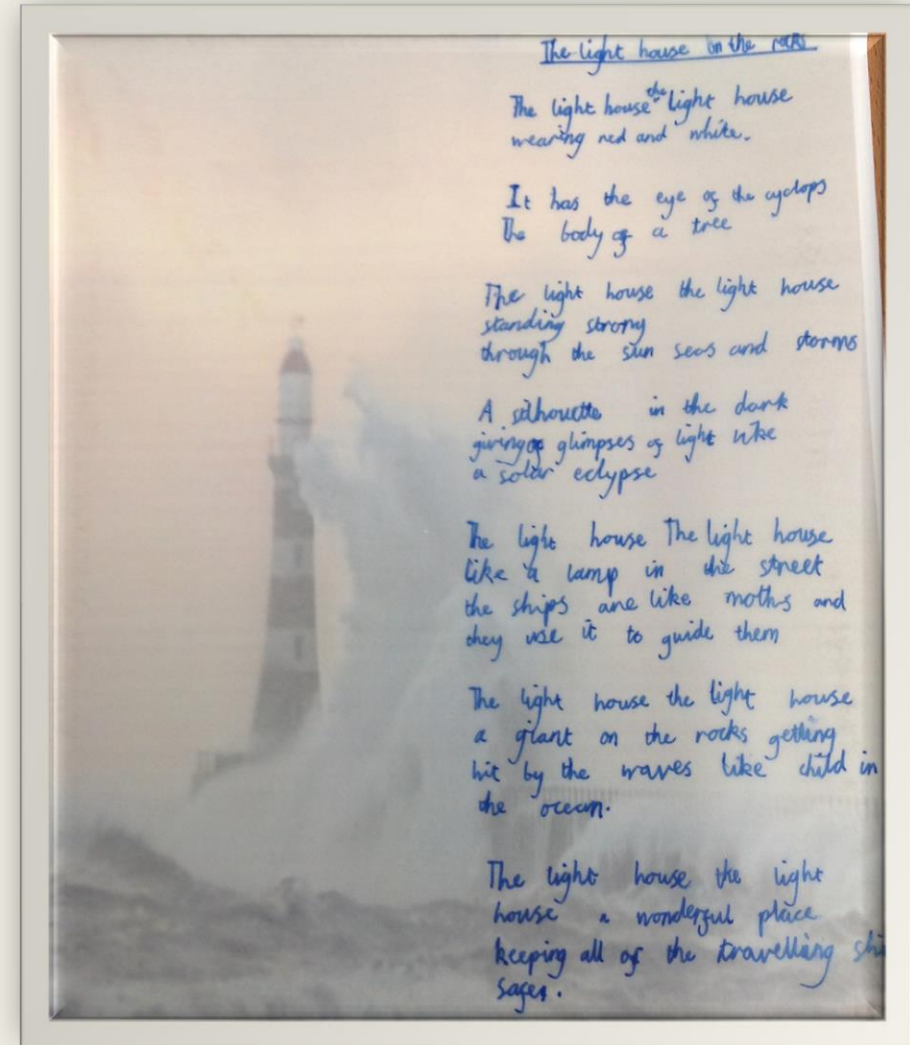 The light house on the rocks
The light house the light house
wearing red and white.
It has the eye of the cyclops
The body of a tree
The light house the light house
standing strong
through the sun seas and storms
A silhouette in the dark
giving glimpses of light like
a solar eclypse
The light house The light house
like a lamp in the street
the ships are like moths and
they use it to guide them
The light house the light house
a giant on the rocks getting
hit by the waves like child in
the ocean.
The light house the light
house a wonderful place
keeping all of the travelling
safer.